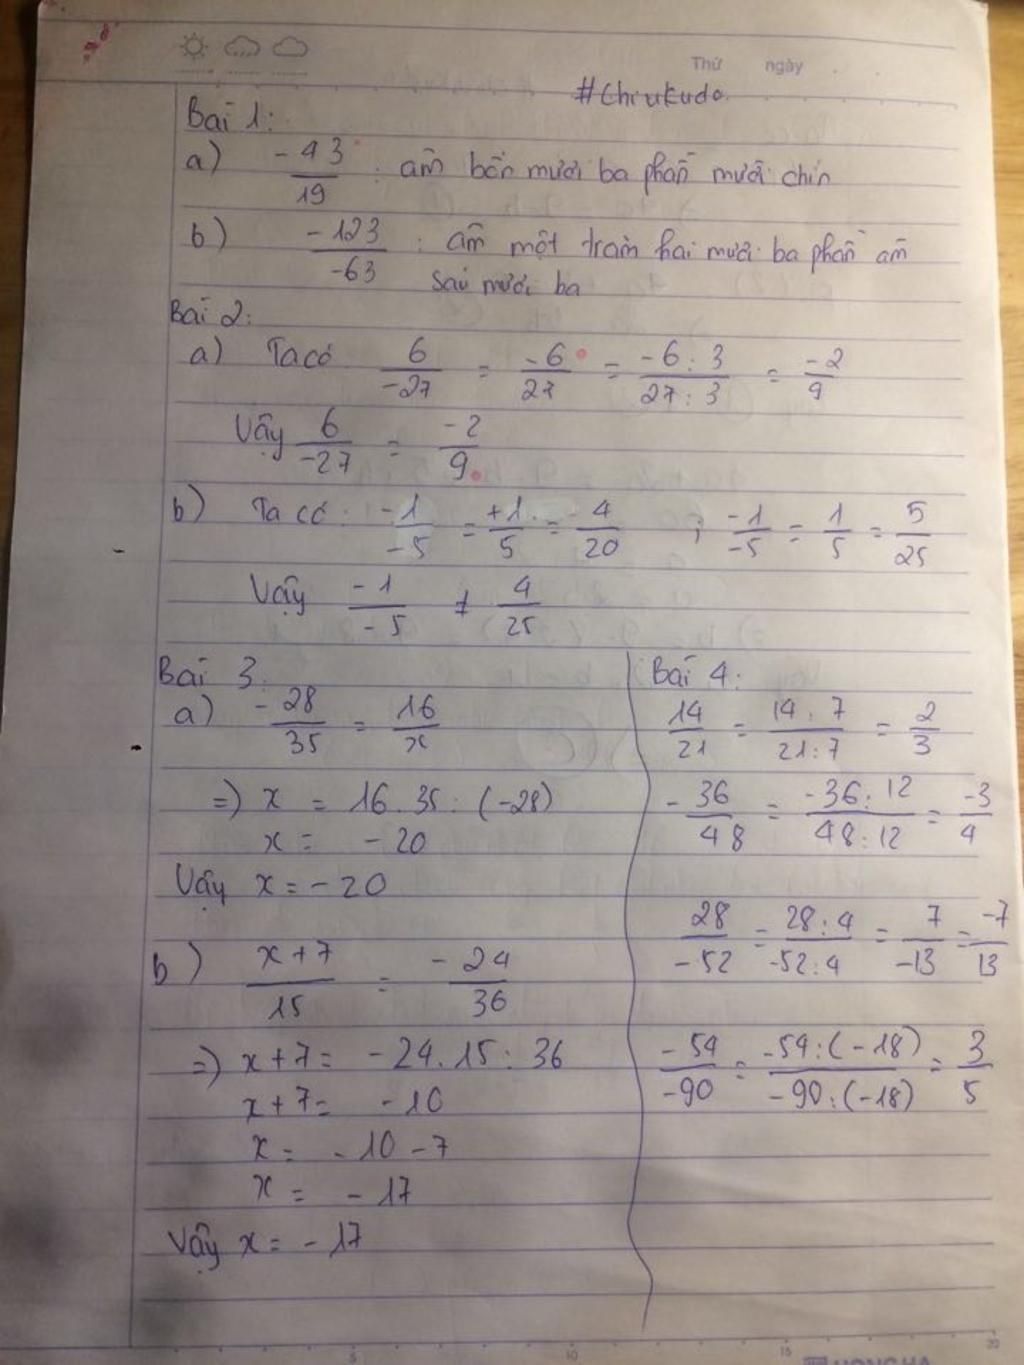 Thứ ngày
#Chiukudo.
Bài 1:
a) -43/19 : âm bốn mươi ba phần mười chín
b) -123/-63 : âm một trăm hai mươi ba phần âm
sáu mươi ba
Bài 2:
a) Ta có 6/-27 = -6/27 = -6:3/27:3 = -2/9
Vậy 6/-27 = -2/9
b) Ta có: -1/-5 = +1/5 = 4/20 ; -1/-5 = 1/5 = 5/25
Vậy -1/-5 ≠ 4/25
Bài 3:
a) -28/35 = 16/x
=) x = 16.35:(-28)
x = -20
Vậy x = -20
b) x+7/15 = -24/36
=) x+7= -24.15:36
x+7= -10
x = -10-7
x = -17
Vậy x = -17
Bài 4:
14/21 = 14:7/21:7 = 2/3
-36/48 = -36:12/48:12 = -3/4
28/-52 = 28:4/-52:4 = 7/-13 = -7/13
-54/-90 = -54:(-18)/-90:(-18) = 3/5
5 10 15 20
HONG HA